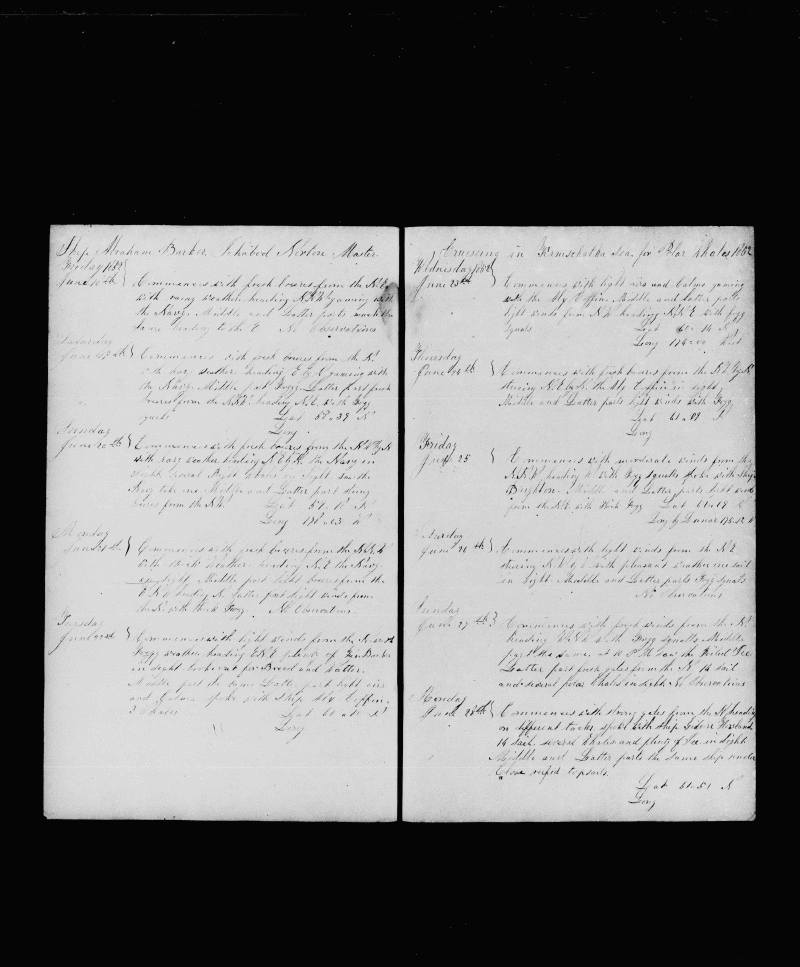 Ship Abraham Barker Ichabod Norton Master
Friday 1852
June 18th } Commences with fresh breezes from the N.E.
with weather heading N.N.W gaming with
the Navy. Middle and Latter parts much the
same heading to the E No Observations
Saturday
June 19th } Commences with fresh breezes from the N.
with weather heading gaming with
the Navy. Middle part Fogg. Latter part fresh
breezes from the heading N.E. with Fogg
squals Lat 58.39 N
Long
Sunday
June 20th } Commences with fresh breezes from the
with weather heading N.E. by N. the Navy in
sight Several Right Whales in sight saw the
Navy take one Middle and Latter part strong
from the N.W. Lat 59 N
Long 178.03 W
Monday
June 21st } Commences with fresh breezes from the
with thick weather heading N.E. the Navy
in sight. Middle part light breezes from the
heading N. Latter part light winds from
the N. with thick Fogg. No Observations
Tuesday
June 22nd } Commences with light winds from the
Fogg weather heading E.N.E. plenty of
in sight look out for Bread and Water.
Middle part the same Latter part light airs
and Calms spoke with Ship Coffin
3 Whales Lat 60 N
Long
Cruising in Kamschatka Sea for Polar Whales 1852
Wednesday 1852
June 23rd } Commences with light airs and Calms gaming
with the Coffin Middle and Latter parts
light winds from N.W. heading N.N.E. with Fogg
squals Lat 60.14 N
Long 178.00 West
Thursday
June 24th } Commences with fresh breezes from the
steering N.E. by N. the Coffin in sight
Middle and Latter parts light winds with Fogg
Lat 61.09 N
Long
Friday
June 25 } Commences with moderate winds from the
N.N.W. heading with Fogg squalls spoke with Ship
Brighton. Middle and Latter parts light winds
from the N.E. with thick Fogg Lat 61.19 N
Long by Lunar 178.12 W
Saturday
June 26th } Commences with light winds from the N.E.
steering with pleasant weather one sail
in sight. Middle and Latter parts Fogg squals
No Observations
Sunday
June 27th } Commences with fresh winds from the N.
heading with Fogg squalls Middle
part the same, at 10 P.M. saw the first Ice
Latter part fresh gales from the N. 14 sail
and several polar Whales in sight No Observations
Monday
June 28th } Commences with strong gales from the N heading
on different tacks, spoke with ship Isaac Howland
14 sail, several Whales and plenty of Ice in sight
Middle and Latter parts the same ship under
Close reefed topsails.
Lat 61.51 N
Long